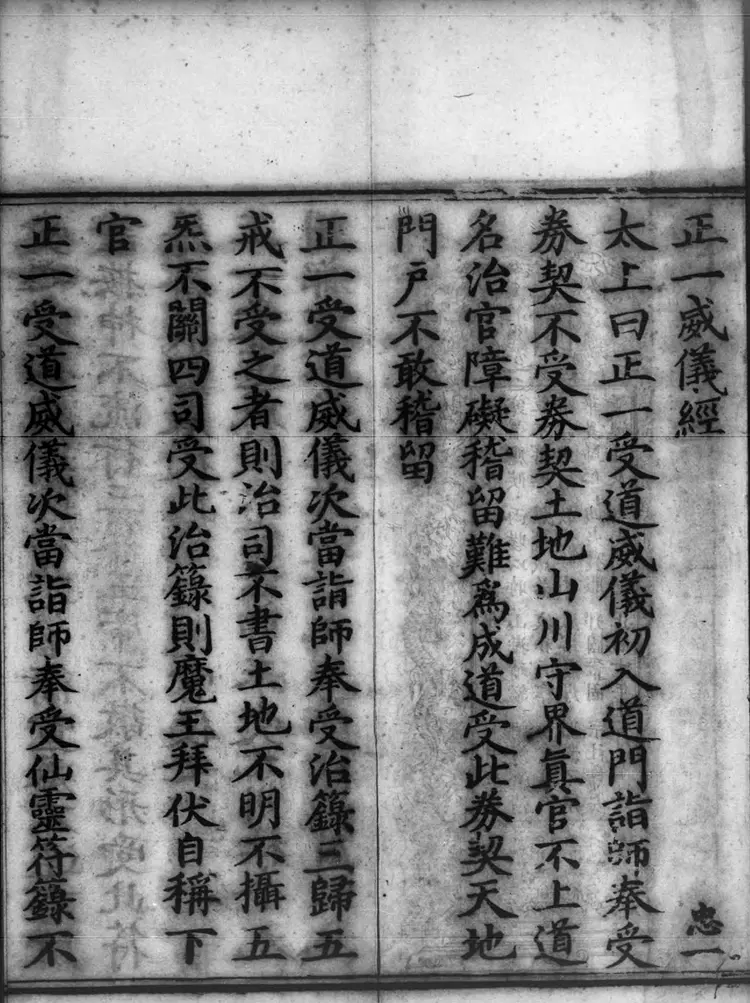 正一威儀經
忠一
太上曰正一受道威儀初入道門詣師奉受
券契不受券契土地山川守界真官不上道
名治官障礙稽留難爲成道受此券契天地
門戶不敢稽留
正一受道威儀次當詣師奉受治籙三歸五
戒不受之者則治司不書土地不明不攝五
炁不關四司受此治籙則魔王拜伏自稱下
官
正一受道威儀次當詣師奉受仙靈符籙不